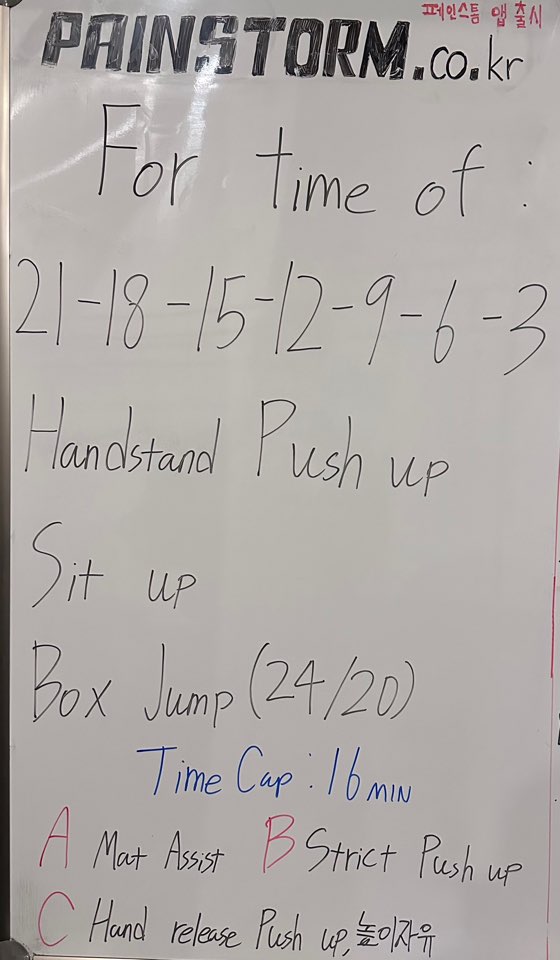 페인스톰 앱 출시
PAINSTORM.co.kr
For time of :
21-18-15-12-9-6-3
Handstand Push up
Sit up
Box Jump (24/20)
Time Cap : 16 MIN
A Mat Assist B Strict Push up
C Hand release Push up, 높이자유